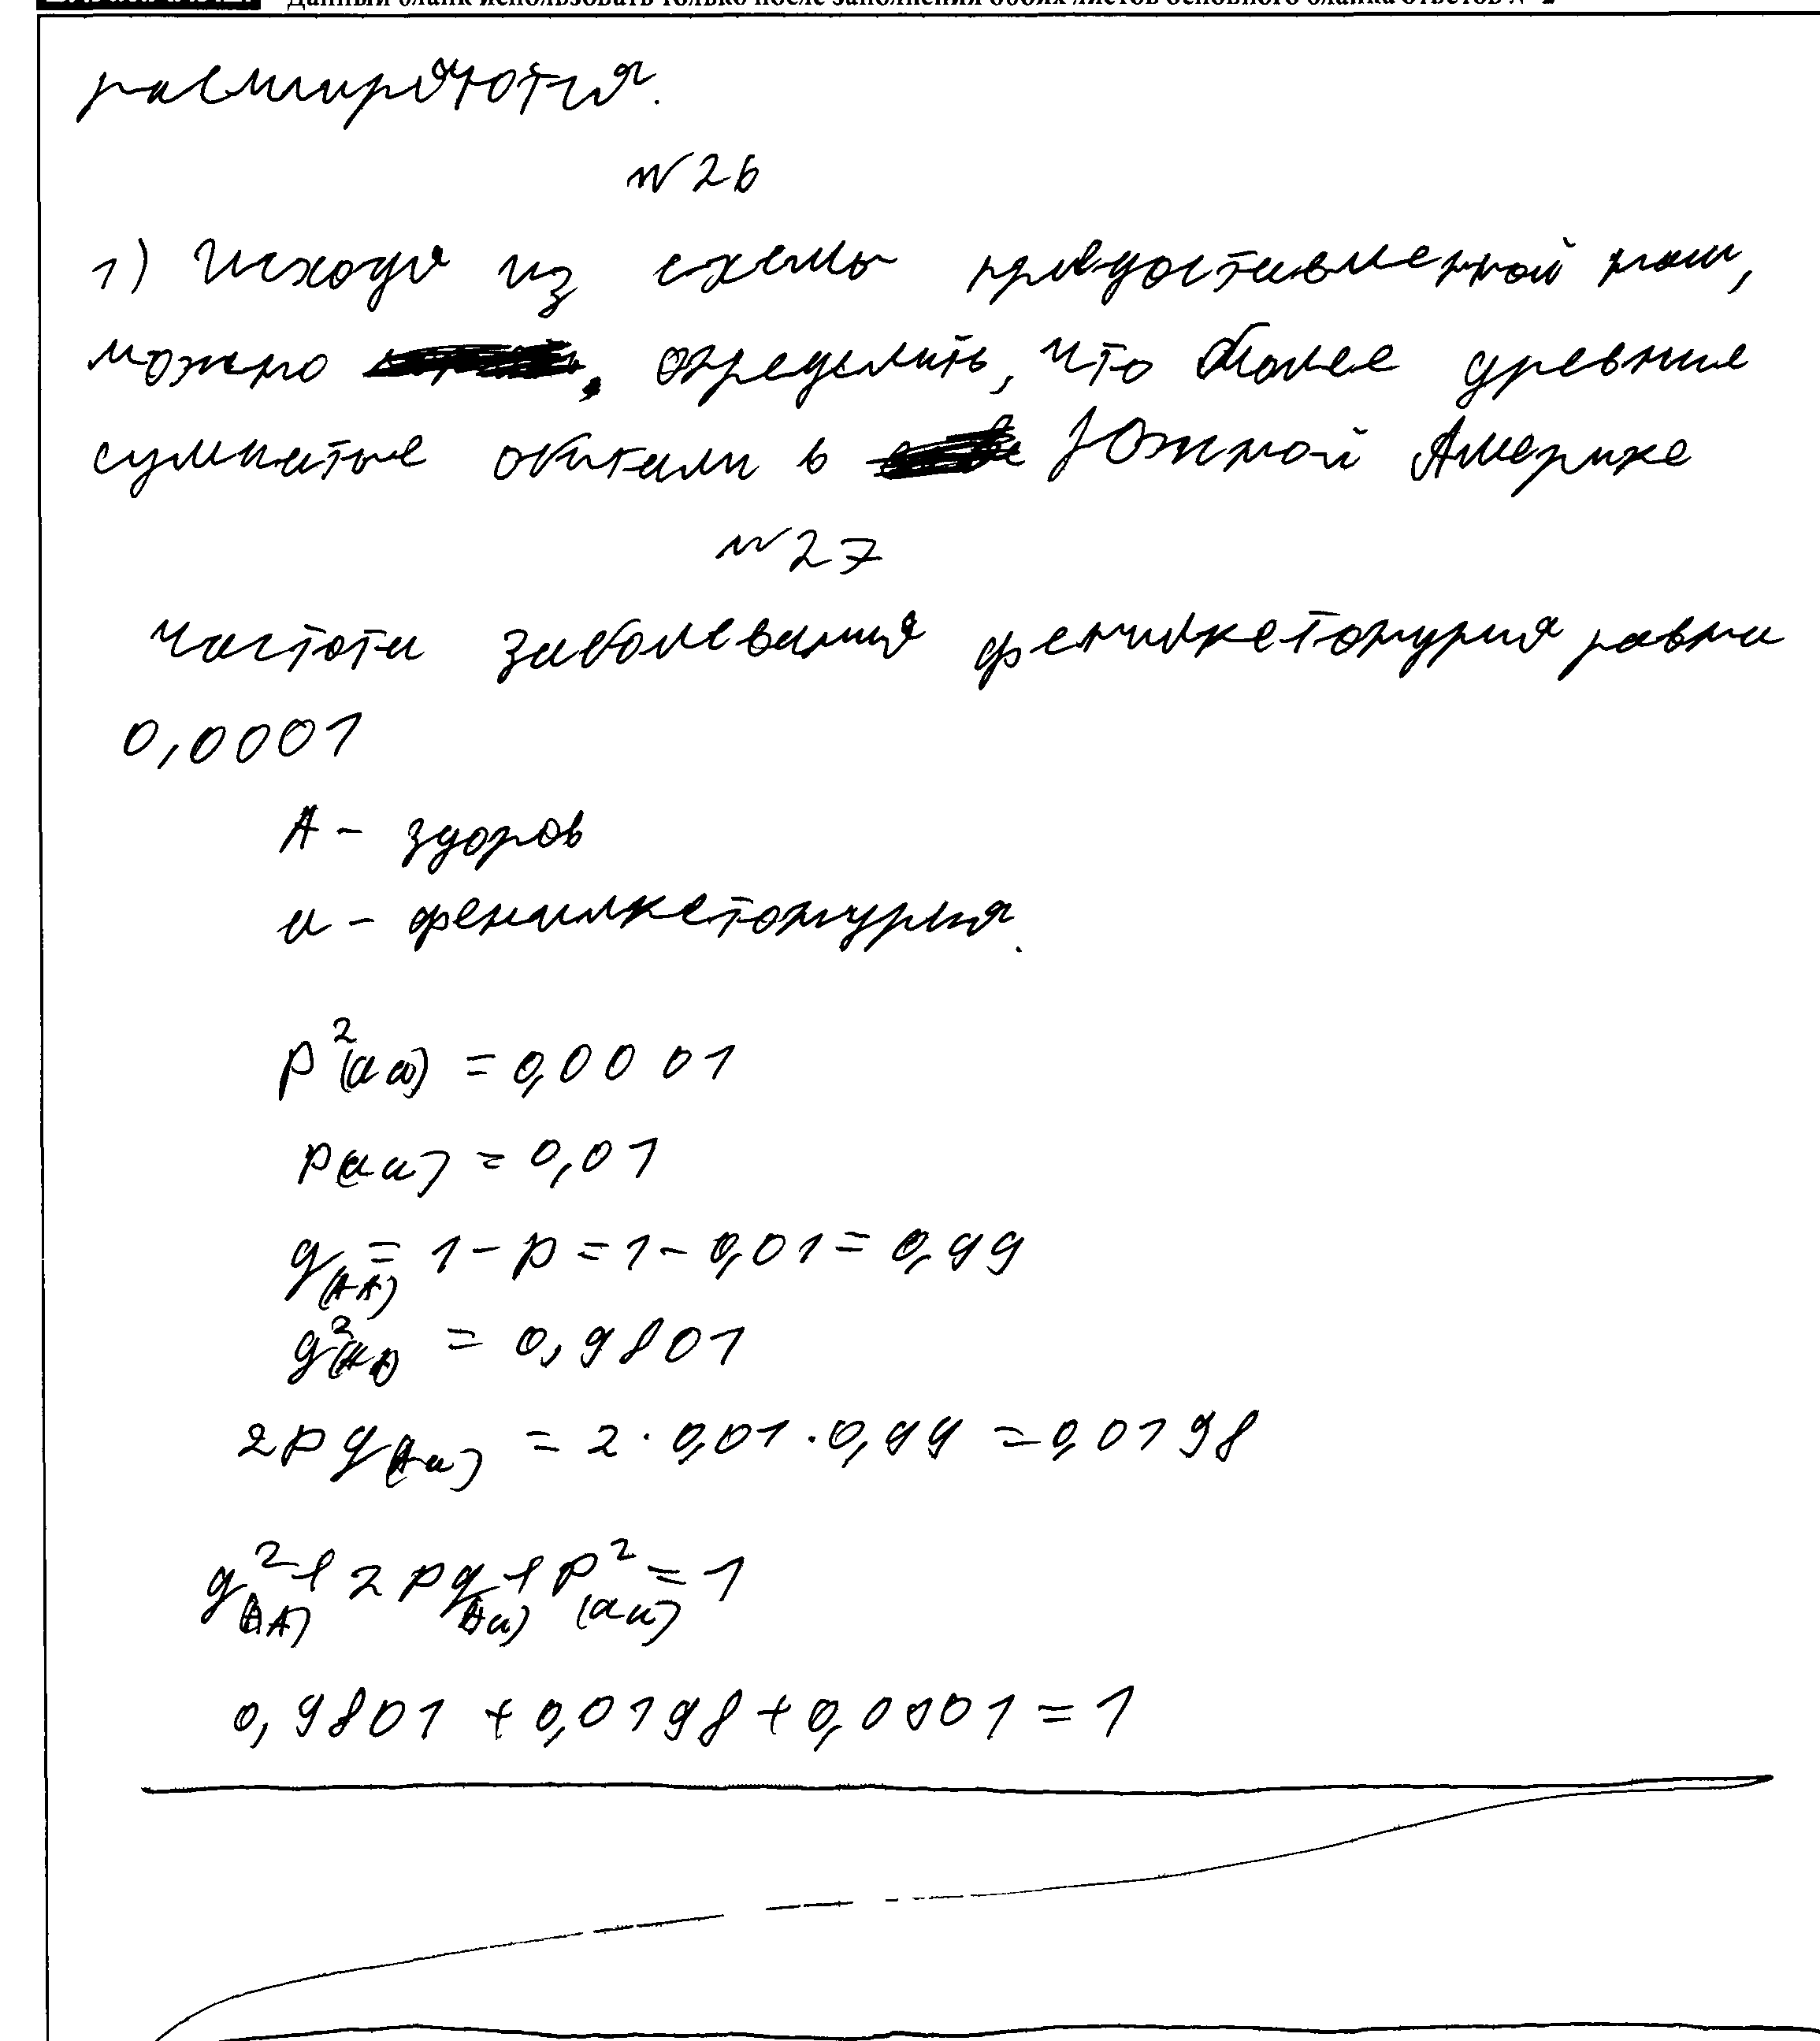 Данный бланк использовать только после заполнения обоих листов основного бланка ответов № 2
расширяются.
№26
1) Исходя из схемы предоставленной нам,
можно определить, что более древние
сумчатые обитали в Южной Америке
№27
Частота заболевания фенилкетонурия равна
0,0001
А - здоров
а - фенилкетонурия.
p²(аа) = 0,0001
p(аа) = 0,01
q(АА) = 1 - p = 1 - 0,01 = 0,99
q²(АА) = 0,9801
2pq(Аа) = 2 · 0,01 · 0,99 = 0,0198
q²(АА) + 2pq(Аа) + p²(аа) = 1
0,9801 + 0,0198 + 0,0001 = 1